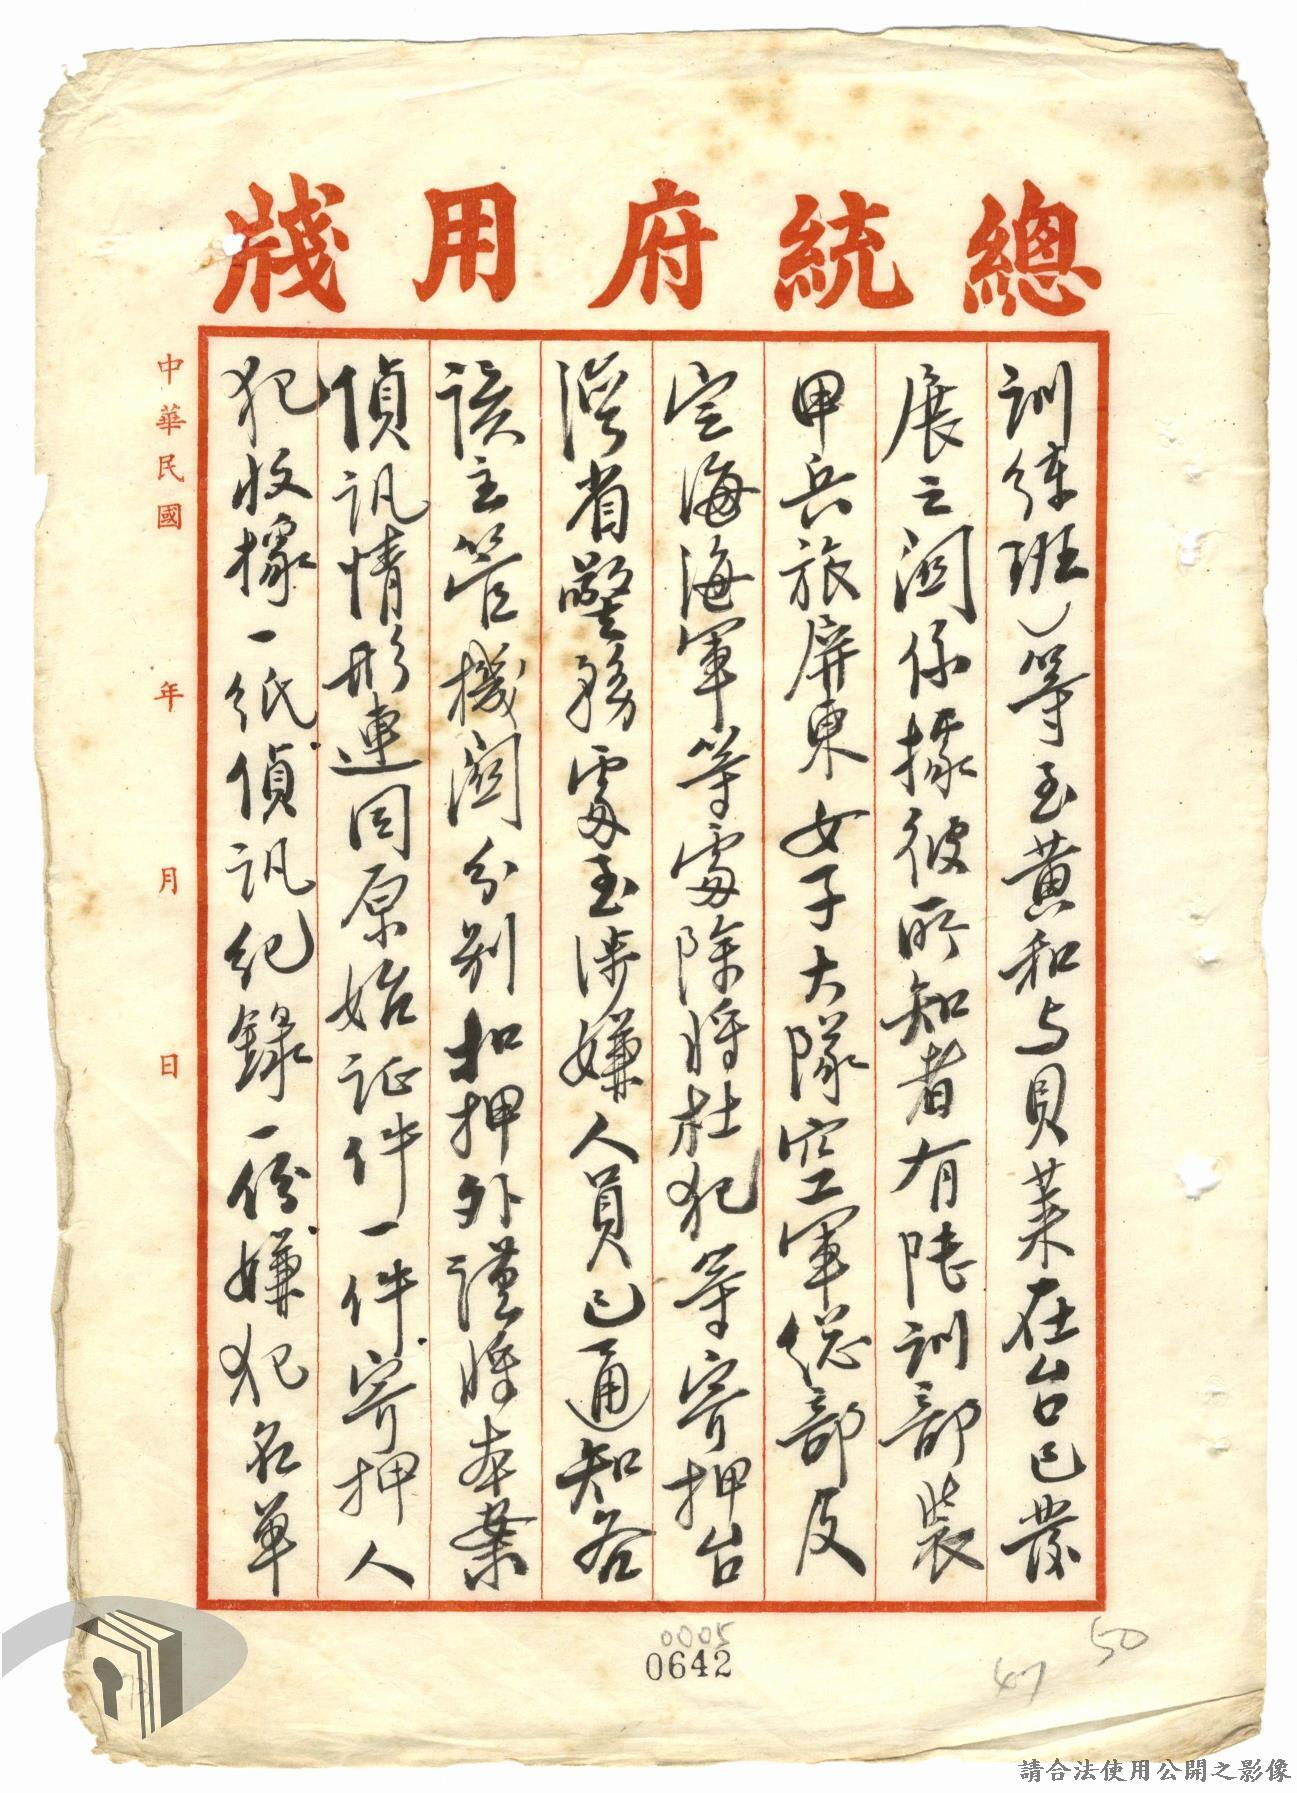 總統府用牋
訓練班）等至黃和与貝萊在台已發
展之関係據彼所知者有陸訓部裝
甲兵旅屏東女子大隊空軍總部及
定海海軍等處除將杜犯等寄押台
灣省警務處至涉嫌人員已通知各
該主管機関分別扣押外謹將本案
偵訊情形連同原始証件一件寄押人
犯收據一紙偵訊紀錄一份嫌犯名單
中華民國 年 月 日
0005
0642
47
50
請合法使用公開之影像